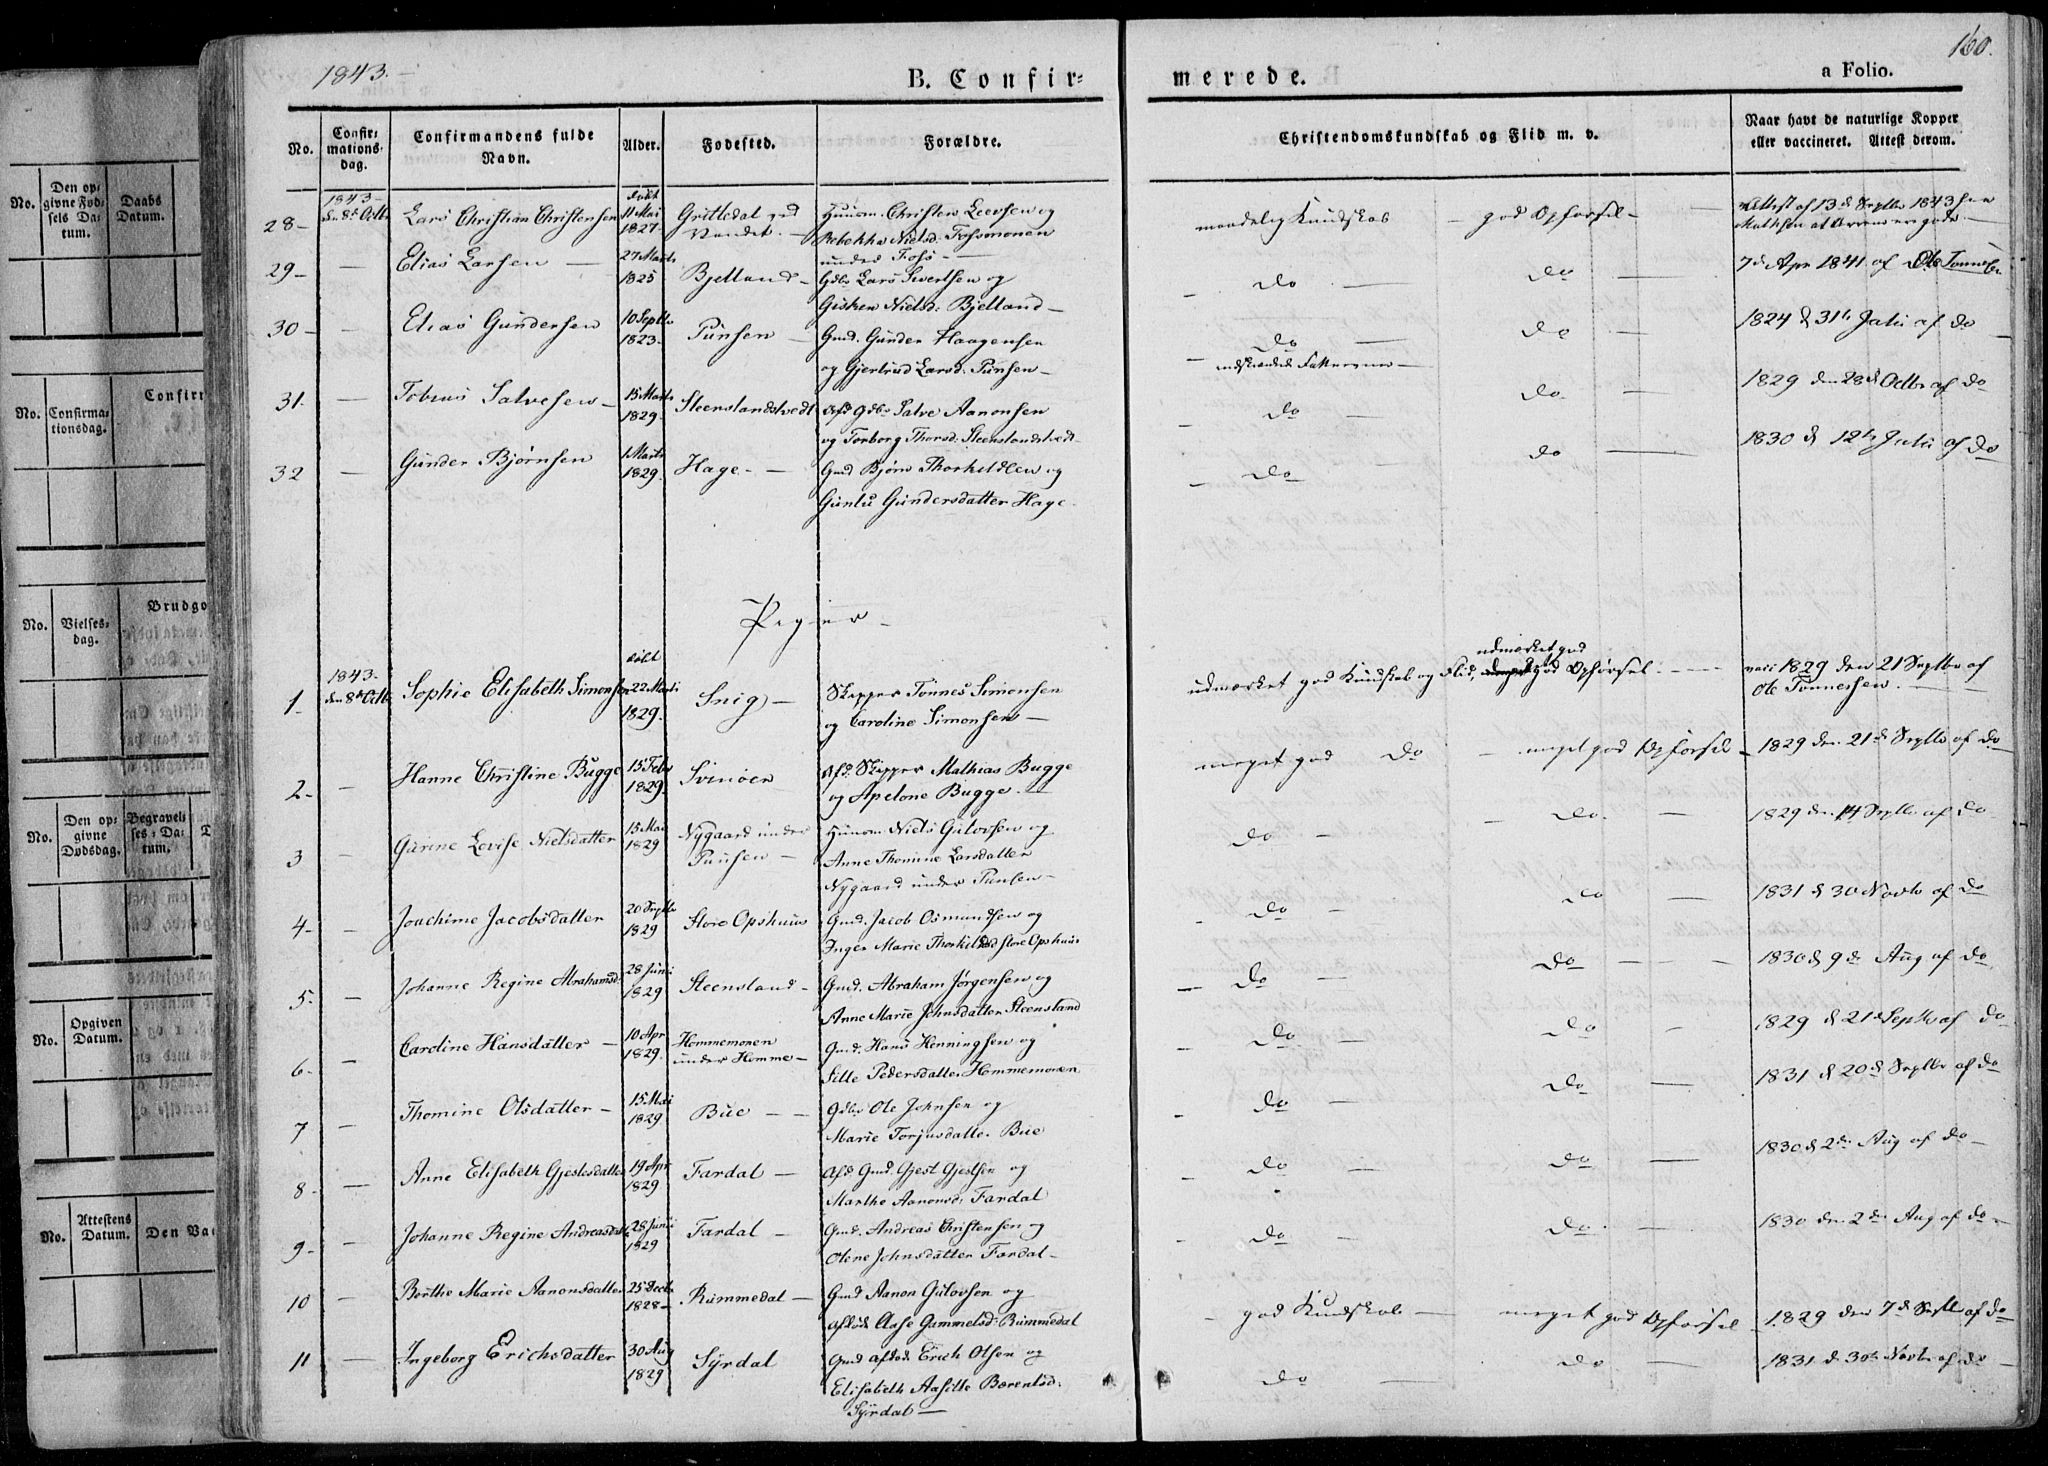 1843.
160.
B. Confirmerede.
a Folio.
No.
Confirmationsdag.
Confirmandens fulde Navn.
Alder.
Fødested.
Forældre.
Christendomskundskab og Flid m. v.
Naar havt de naturlige Kopper eller vaccineret. Attest derom.
28- 1843 d. 8de Octbr Lars Christian Christensen døbt 11 Mai 1827. Huusm. Christen Leevsen og
Rebekka Nielsd. Fossmonen under Foss maadelig Kundskab - god Opførsel - Attest af 13de Septbr 1843
29- - Elias Larsen - 27 Marts 1825 Bjelland - Gdbr Lars Sivertsen og
Gisken Nielsd: Bjelland - - do - do - 7de Apr 1841 af Ole Tønnesen
30- - Elias Gundersen 10 Septbr 1823. Punsen - Gmd. Gunder Haagensen
og Gjertrud Larsd: Punsen - - do - do - 1824 d 31te Julii af do
31. - Tobias Salvesen - 15 Marts 1829. Steenslandstvedt Afd Gdbr Salve Aanonsen
og Torborg Thorsd: Steenslandstvedt - do - do - 1829 den 28de Octbr af do
32 - Gunder Bjørnsen 1 Marts 1829. Hage - - Gmd Bjørn Thorkildsen og
Gunlu Gundersdatter Hage. - do - do - 1830 d 12te Julii af do
Piger -
1. 1843. den 8de Octbr Sophie Elisabeth Simonsen døbt 22 Marti 1829. Snig - Skipper Tønnes Simonsen
og Caroline Simonsen - udmærket god Kundskab og Flid, udmærket god Opførsel. - vacc 1829 den 21 Septbr af
Ole Tønnessen. -
2- - Hanne Christine Bugge 15 Febr 1829. Svinøer Afd. Skipper Mathias Bugge
og Apelone Bugge. - meget god do - meget god Opførsel - 1829 den 21de Septbr af do -
3 - Gurine Lovise Nielsdatter 15 Mai 1829 Nygaard under Punsen - Huusm Niels Gulovsen og
Anne Thomine Larsdatter
Nygaard under Punsen - do - do. - 1829 den 14 Septbr af do.
4- - Joachime Jacobsdatter 20 Septbr 1829 Store Opshuus Gmd. Jacob Osmundsen og
Inger Marie Thorkildsd Store Opshuus - do - do - 1831 d 30 Novbr af do
5- - Johanne Regine Abrahamsd: 28 Juni 1829 Steensland - Gmd. Abraham Jørgensen og
Anne Marie Johnsdatter Steensland - do - do - - - 1830 d 9de Aug af do
6- - Caroline Hansdatter - 10 Apr 1829. Hommemonen under Homme - Gmd. Hans Henningsen og
Sille Pedersdatter Hommemonen - do - do - 1829 d 21de Septbr af do
7 - Thomine Olsdatter - 15 Mai 1829 Bue - - Gdbr Ole Johnsen og
Marie Torjusdatter Bue - do - do - 1831 d 20de Septbr af do
8- - Anne Elisabeth Gjestsdatter 19 Apr 1829 Fardal - Afd Gmd. Gjest Gjestsen og
Marthe Aanonsd: Fardal - do - do - 1830 d 2den Aug af do -
9- - Johanne Regine Andreasdatter 28 Juni 1829 Fardal - Gmd. Andreas Christensen og
Olene Johnsdatter Fardal - - do - do. - 1830 den 2den Aug af do -
10 - Berthe Marie Aanonsdatter 25 Decbr 1828 - Rummedal - Gmd Aanon Gulovsen og
afdøde Aase Gammelsd: Rummedal - god Kundskab - meget god Opførsel - 1829 den 7de Septbr af do -
11 - Ingeborg Erichsdatter 30 Aug 1829 Syrdal Gmd afdøde Erich Olsen og
Elisabeth Aasille Berentsd:
Syrdal - do - do - 1831 d 30te Novbr af do -
No.
Den opgivne Fødsels Datum.
Daabs Datum.
No.
Confirmationsdag.
Confirm
No.
Vielsesdag.
Brudgo
No.
Den opgivne Dødsdag.
Begravelses-Datum.
No.
Opgiven Datum.
No.
Attestens Datum.
Den Va